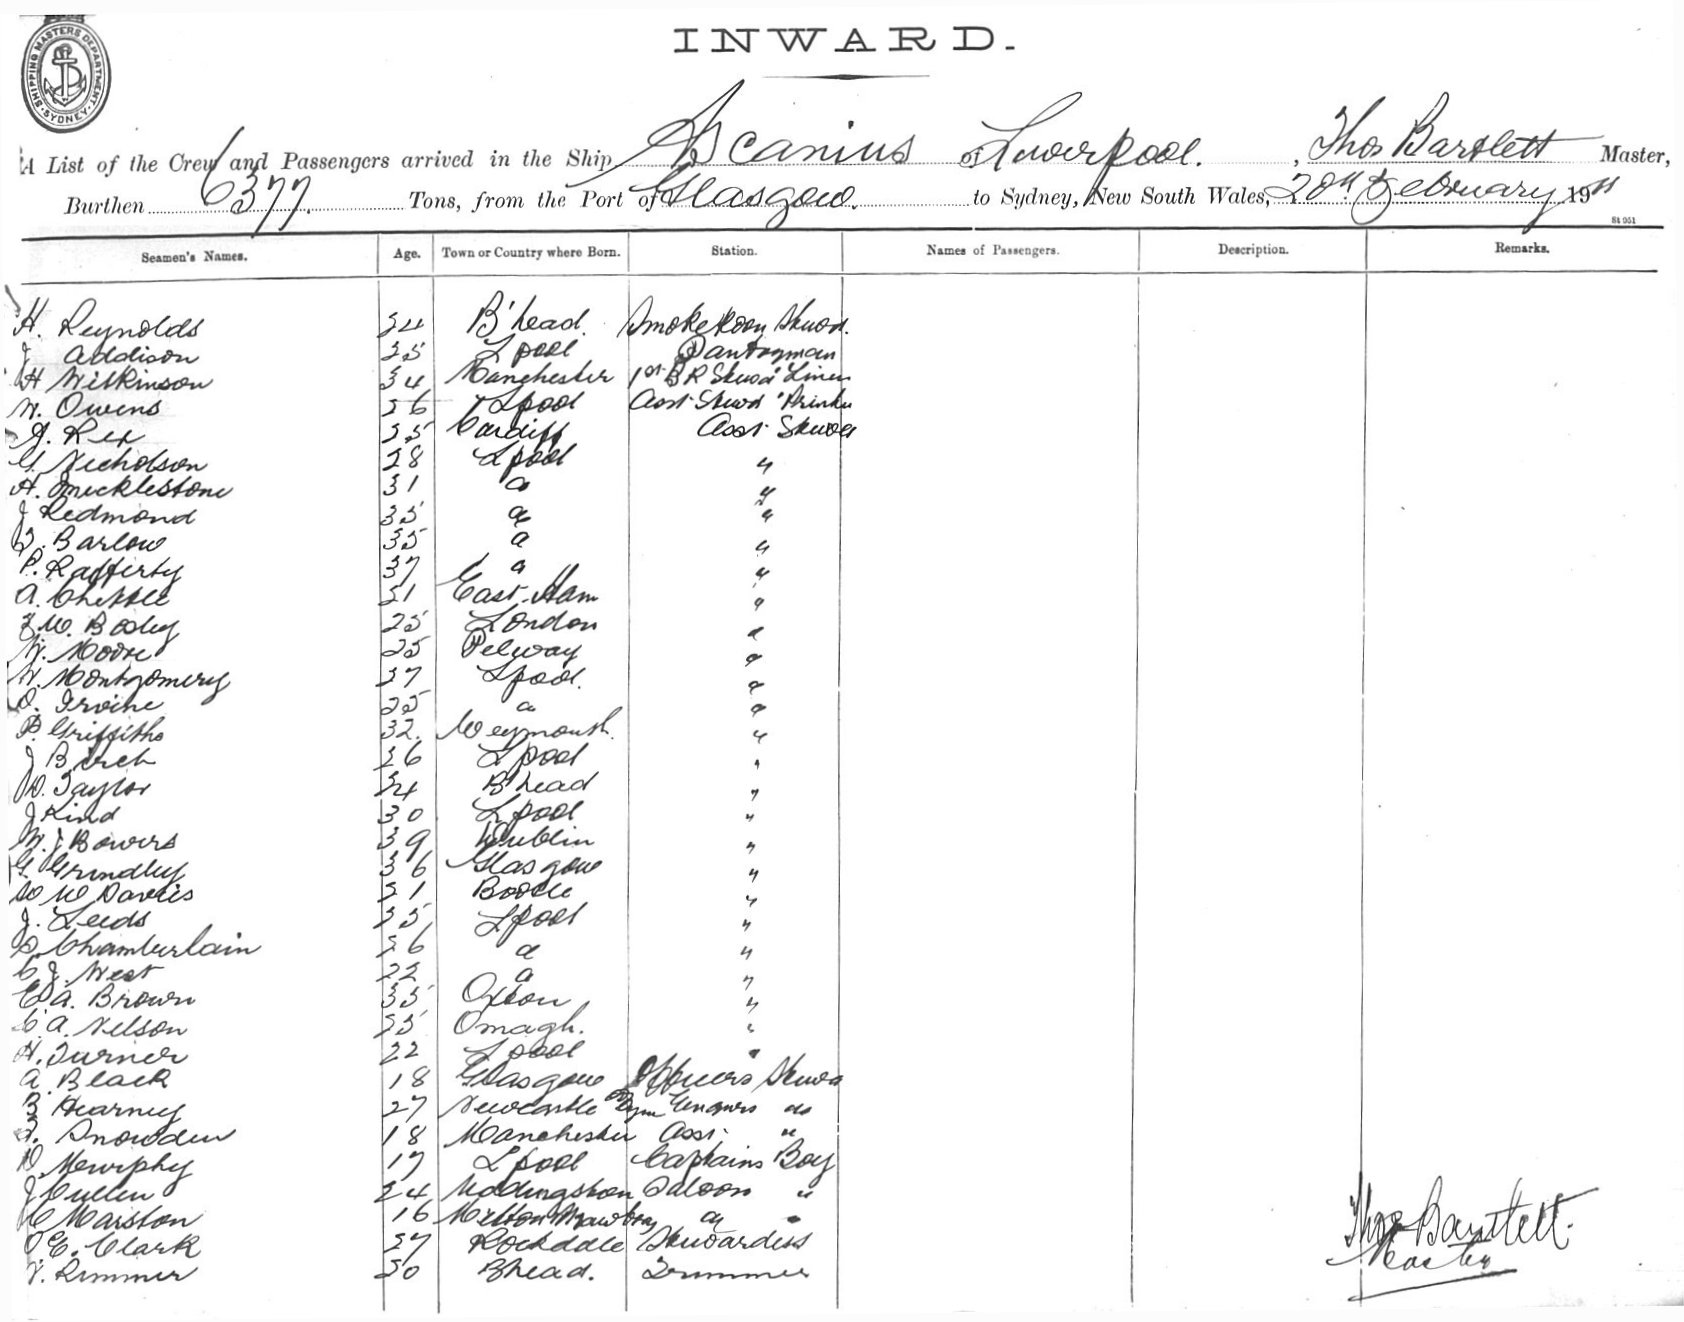 SHIPPING MASTERS DEPARTMENT
SYDNEY
INWARD.
A List of the Crew and Passengers arrived in the Ship Ascanius of Liverpool. , Thos Bartlett Master,
Burthen 6377. Tons, from the Port of Glasgow. to Sydney, New South Wales, 20th February 1911
St 951
Seamen's Names. Age. Town or Country where Born. Station. Names of Passengers. Description. Remarks.
H. Reynolds B'head. Smoke Room Stewd.
J Addison L'pool Pantryman
H Wilkinson 34 Manchester 1st B R Stewd Linen
W. Owens 26 L'pool Asst Stewd
J. Rex Cardiff Asst Stewd
G. Nicholson 28 L'pool "
H. Micklestone 31 " "
J Redmond 35 " "
Barlow 35 " "
P. Rafferty 37 " "
A. East Ham "
W. London "
W. Moore 25 "
W. Montgomery 37 L'pool. "
Irvine 25 " "
P. Griffiths 32. Weymouth. "
J Birch 26 L'pool "
Taylor B'head "
J Kind 30 L'pool "
W. J Bowers 39 Dublin "
G. Grindley 36 Glasgow "
W Davies Bootle "
J. Leeds 35 L'pool "
Chamberlain 26 " "
C J. West 22 " "
E A. Brown 35 Oxton "
C A. Nelson Omagh. "
H. Turner 22 L'pool "
A. Black 18 Glasgow Officers Stewd
Kearney 27 Newcastle Engnrs do
Snowden 18 Manchester Asst. "
D Murphy 17 L'pool Captains Boy
J Cullen 24 Uddingston Saloon "
Marston 16 Melton Mowbray " "
E. Clark 37 Rochdale Stewardess
Rimmer B'head. Trimmer
Thos Bartlett.
Master